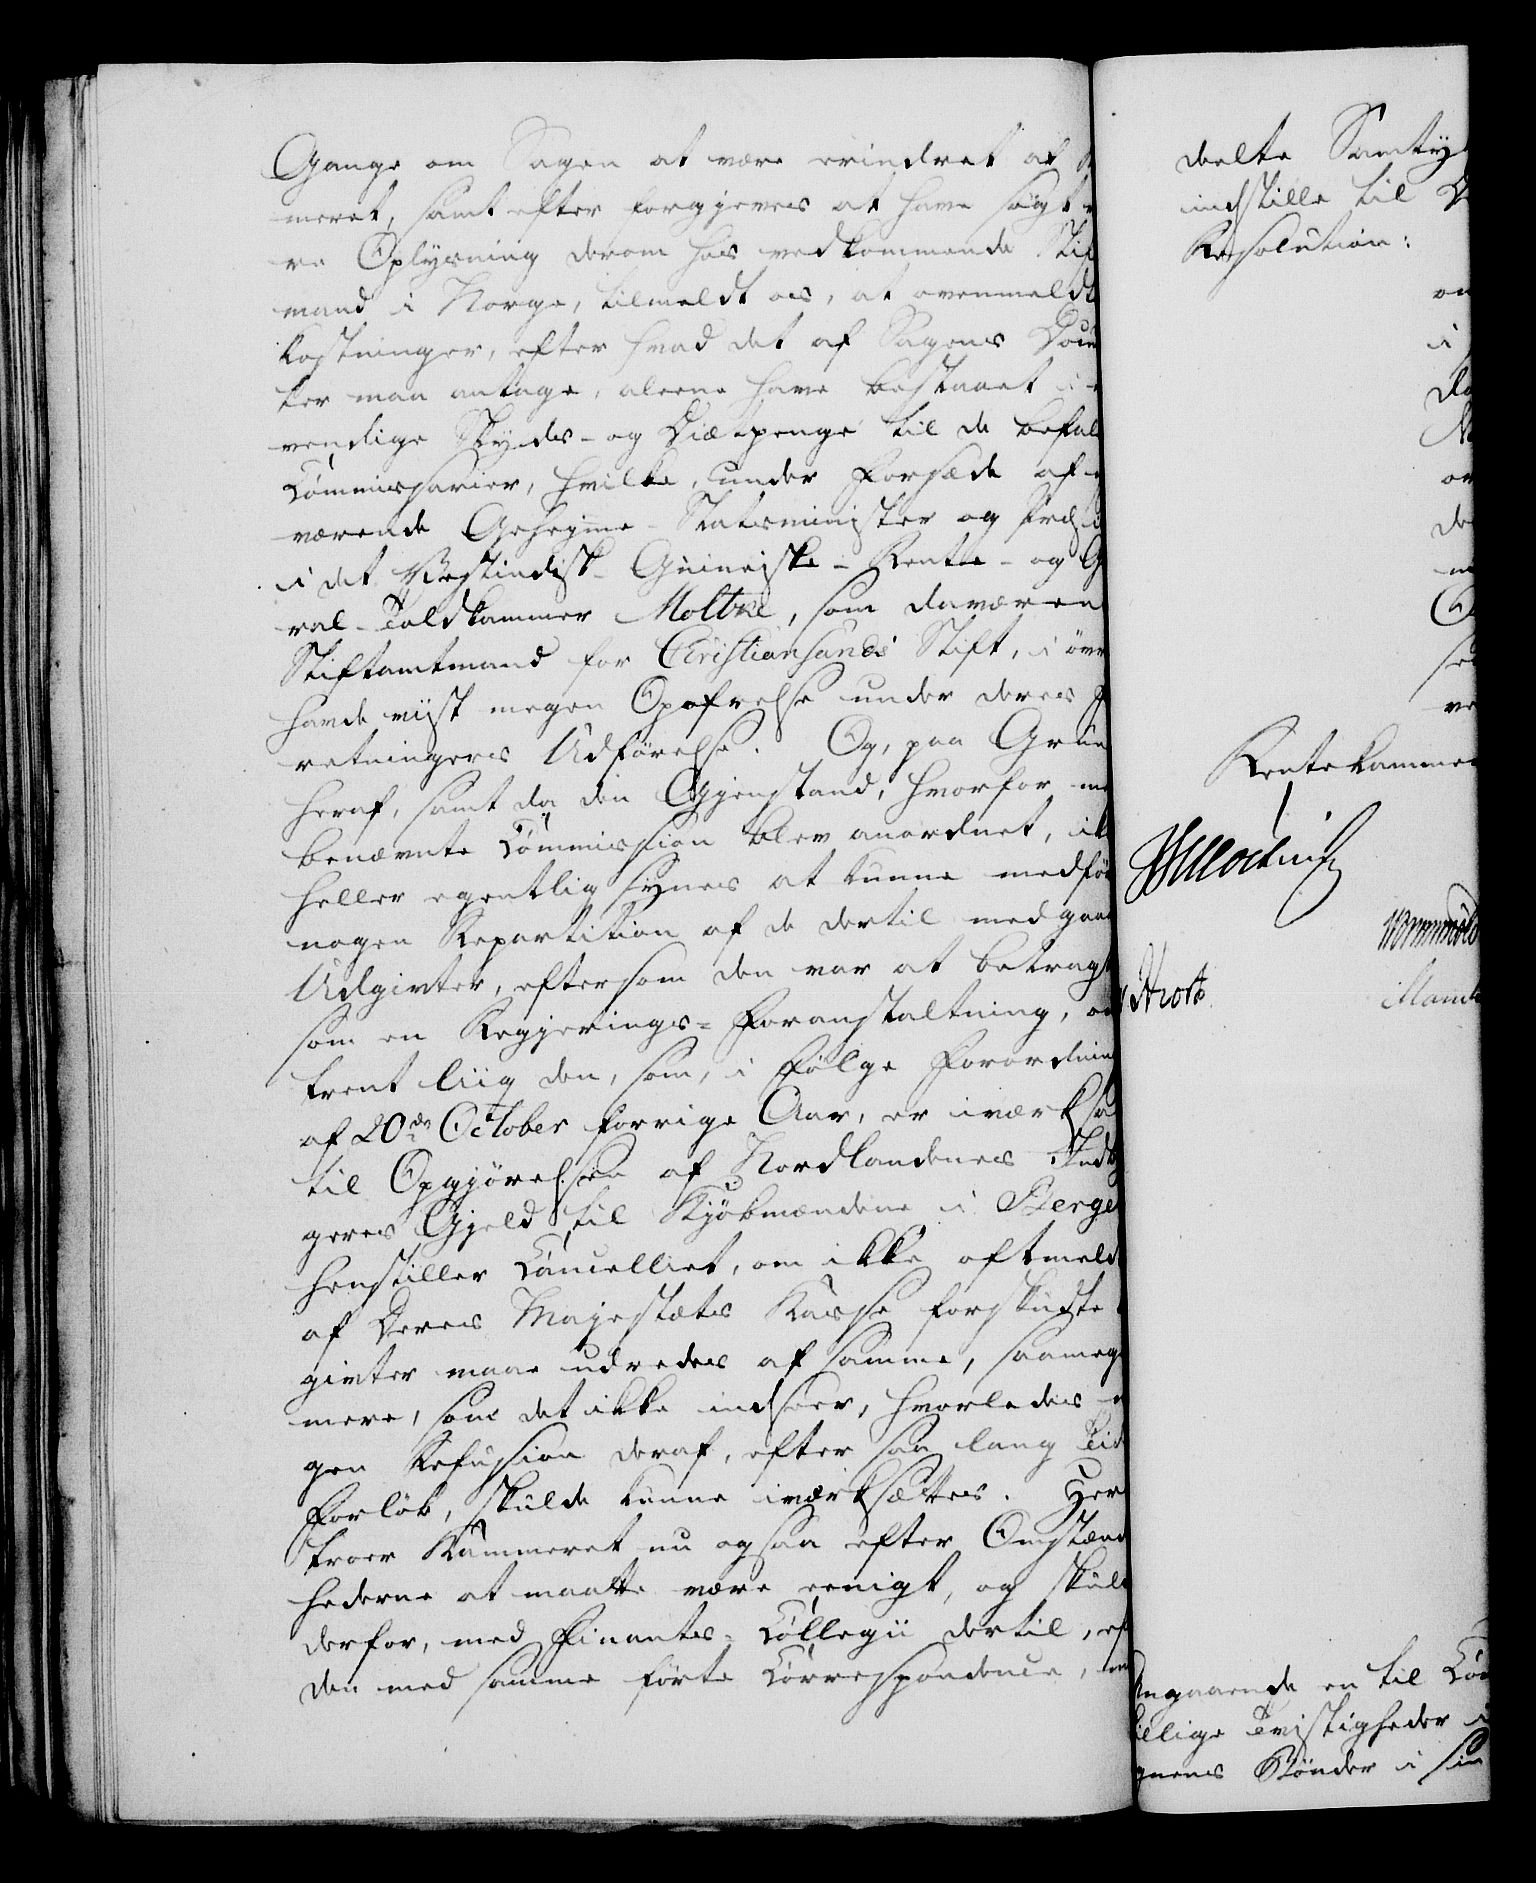 Gange om Sagen at være erindret af
meret, samt efter forgjeves at have søgt
re Oplysning derom hos vedkommende Stif
mand i Norge, tilmeldt os, at ovenmeldt
kostninger, efter hvad det af Sagens Docu
ter maa antage, aleene have bestaaet i
vendige Skyds- og Diætpenge til de befal
Commissarier, hvilke, under Forsæde af
værende Geheime-Statsminister og Præsi
i det Vestindisk-Guineiske-Rente- og Ge
ral-Toldkammer Moltke, som daværen
Stiftamtmand for Christiansands Stift, i øvr
havde viist megen Opofrelse under deres
retningers Udførelse. Og, paa Grun
heraf, samt da den Gjenstand, hvorfor me
benævnte Commission blev anordnet, ik
heller egentlig synes at kunne medfør
nogen Repartition af de dertil medgaae
Udgivter, eftersom den var at betragt
som en Regjerings-Foranstaltning, om
trent liig den, som, i Følge Forordnin
af 20de October forrige Aar, er iværksa
til Opgjørelsen af Nordlandenes Indby
geres Gjeld til Kjøbmændene i Berge
henstiller Cancelliet, om ikke oftmeld
af Deres Majestæts Kasse forskudte
givter maae udredes af samme, saameg
mere, som det ikke indseer, hvorledes
gen Refusion deraf, efter saa lang Tid
Forløb, skulde kunne iværksættes. Her
troer Kammeret nu ogsaa efter Omstænd
hederne at maatte være eenigt, og skuld
derfor, med Finants-Collegii dertil, ef
den med samme førte Correspondence,
deelte Samty
indstille til D
Resolution:
on
i
da
ve
Rentekammer
Angaaende en til Com
tillige Tvistigheder i
gnens Bønder i